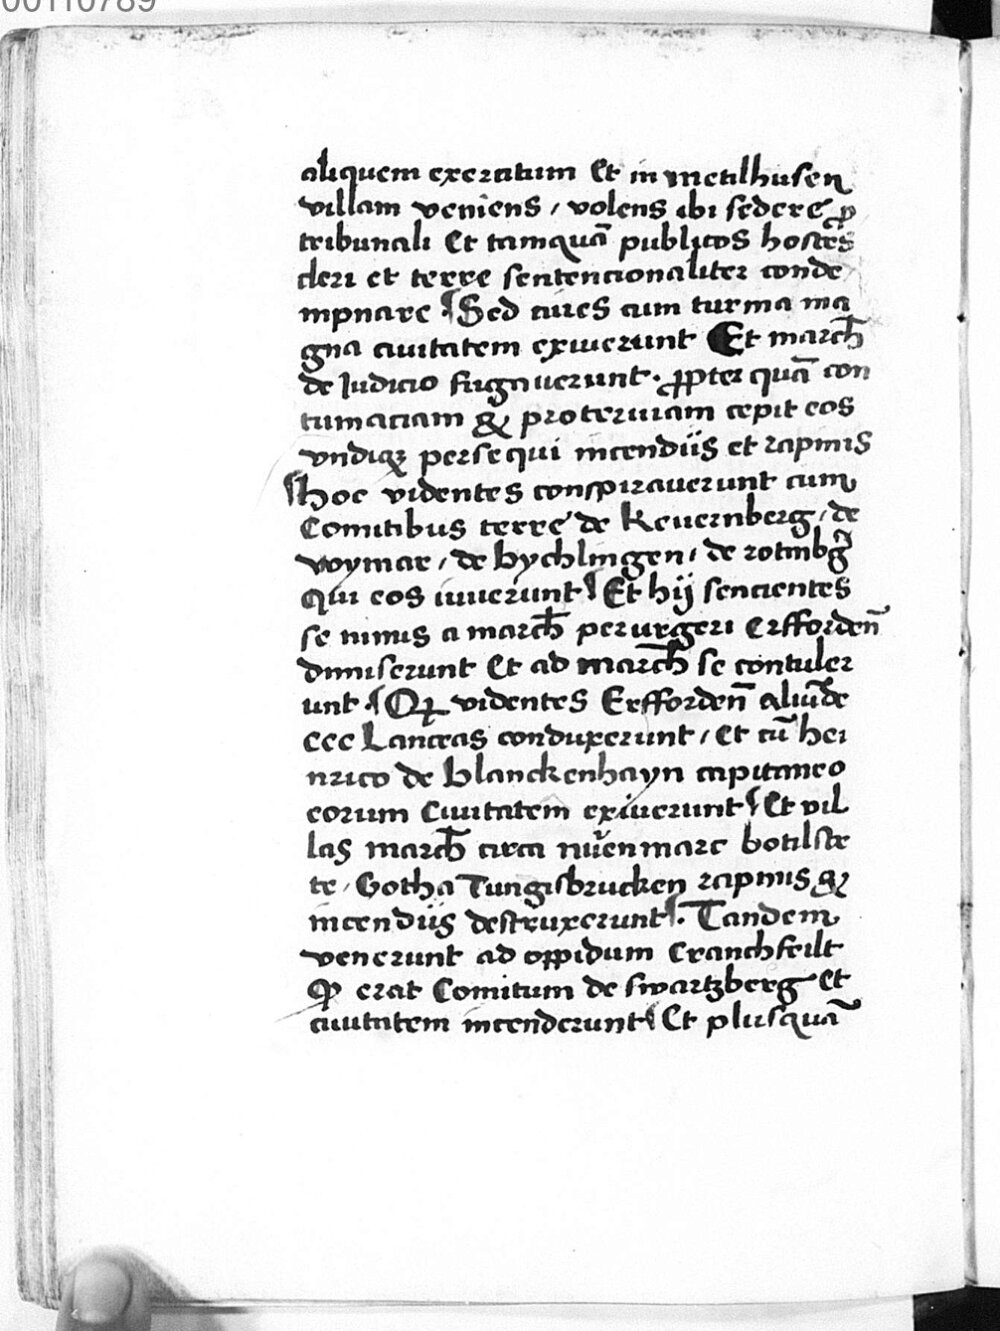 00110789
aliquem exercitum Et in Metilhusen
villam veniens / volens ibi sedere p̄
tribunali Et tamquā publicos hostes
cleri et terre sentencionaliter conde
mpnare Sed ciues cum turma ma
gna ciuitatem exiuerunt Et march̄
de Judicio fugauerunt · ꝓpter quā con
tumaciam & proteruiam cepit eos
vndiqꝫ persequi incendiis et rapinis
Hoc videntes conspirauerunt cum
Comitibus terre de Keuernberg / de
woymar / de bychlingen / de rotinbg̃
Qui eos iuuerunt Et hij sencientes
se nimis a march̄ perurgeri Erfforden̄
dimiserunt Et ad march̄ se contuler
unt Qꝫ videntes Erfforden̄ aliūde
ccc Lanceas conduxerunt / Et cū hei
nrico de blanckenhayn capitaneo
eorum Ciuitatem exiuerunt Et vil
las march̄ circa nuenmarc botilste
te / Gotha Tungisbrucken rapinis &
incendiis destruxerunt · Tandem
venerunt ad oppidum Cranchfeilt
Qꝫ erat Comitum de swartzberg Et
ciuitatem incenderunt Et plusquā